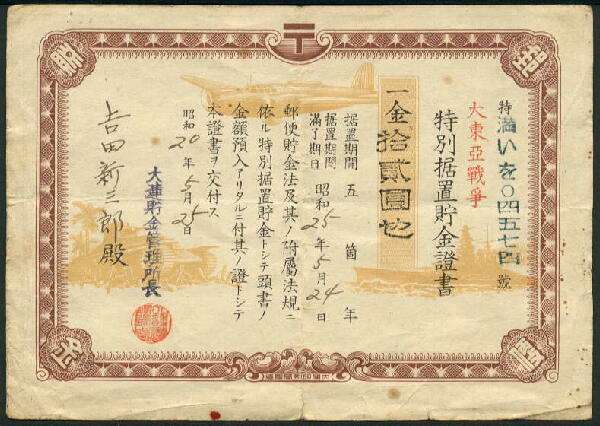 特 満いを〇四五七四 號
大東亞戰爭
特別据置貯金證書
一金拾貳圓也
据置期間 五箇年
据置期間滿了期日 昭和25年5月24日
郵便貯金法及其ノ附屬法規ニ
依ル特別据置貯金トシテ頭書ノ
金額預入アリタルニ付其ノ證トシテ
本證書ヲ交付ス
昭和20年5月25日
大連貯金管理所長
吉田新三郎殿